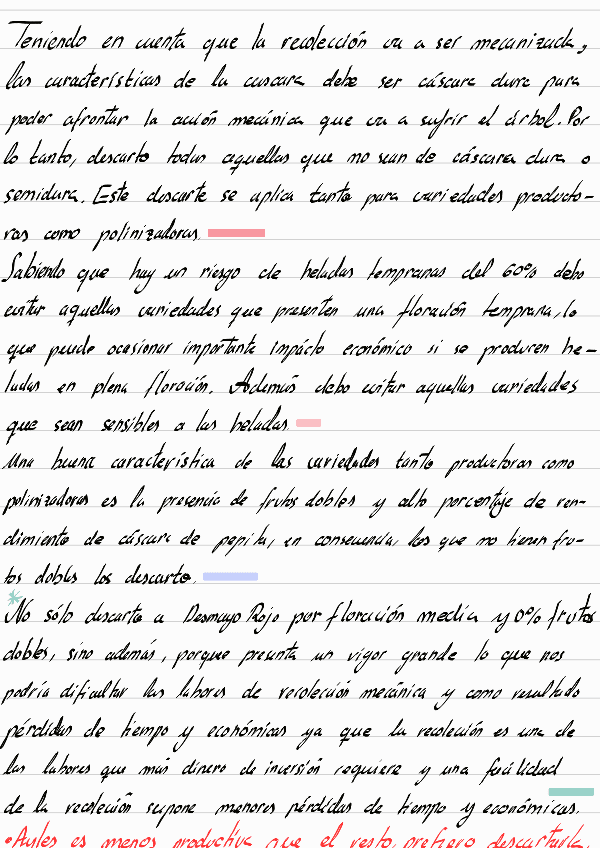 Teniendo en cuenta que la recolección va a ser mecanizada,
las características de la cascara debe ser cáscara dura para
poder afrontar la acción mecánica que va a sufrir el árbol. Por
lo tanto, descarto todas aquellas que no sean de cáscara dura o
semidura. Este descarte se aplica tanto para variedades producto-
ras como polinizadoras.
Sabiendo que hay un riesgo de heladas tempranas del 60% debo
evitar aquellas variedades que presenten una floración temprana, lo
que puede ocasionar importante impacto económico si se producen he-
ladas en plena floración. Además debo evitar aquellas variedades
que sean sensibles a las heladas
Una buena característica de las variedades tanto productoras como
polinizadoras es la presencia de frutos dobles y alto porcentaje de ren-
dimiento de cáscara de pepita, en consecuencia, las que no tienen fru-
tos dobles los descarto.
*No sólo descarto a Desmayo Rojo por floración media y 0% frutos
dobles, sino además, porque presenta un vigor grande lo que nos
podría dificultar las labores de recolección mecánica y como resultado
pérdidas de tiempo y económicas ya que la recolección es una de
las labores que más dinero de inversión requiere y una facilidad
de la recolección supone menores pérdidas de tiempo y económicas.
•Ayles es menos productiva que el resto, prefiero descartarla.